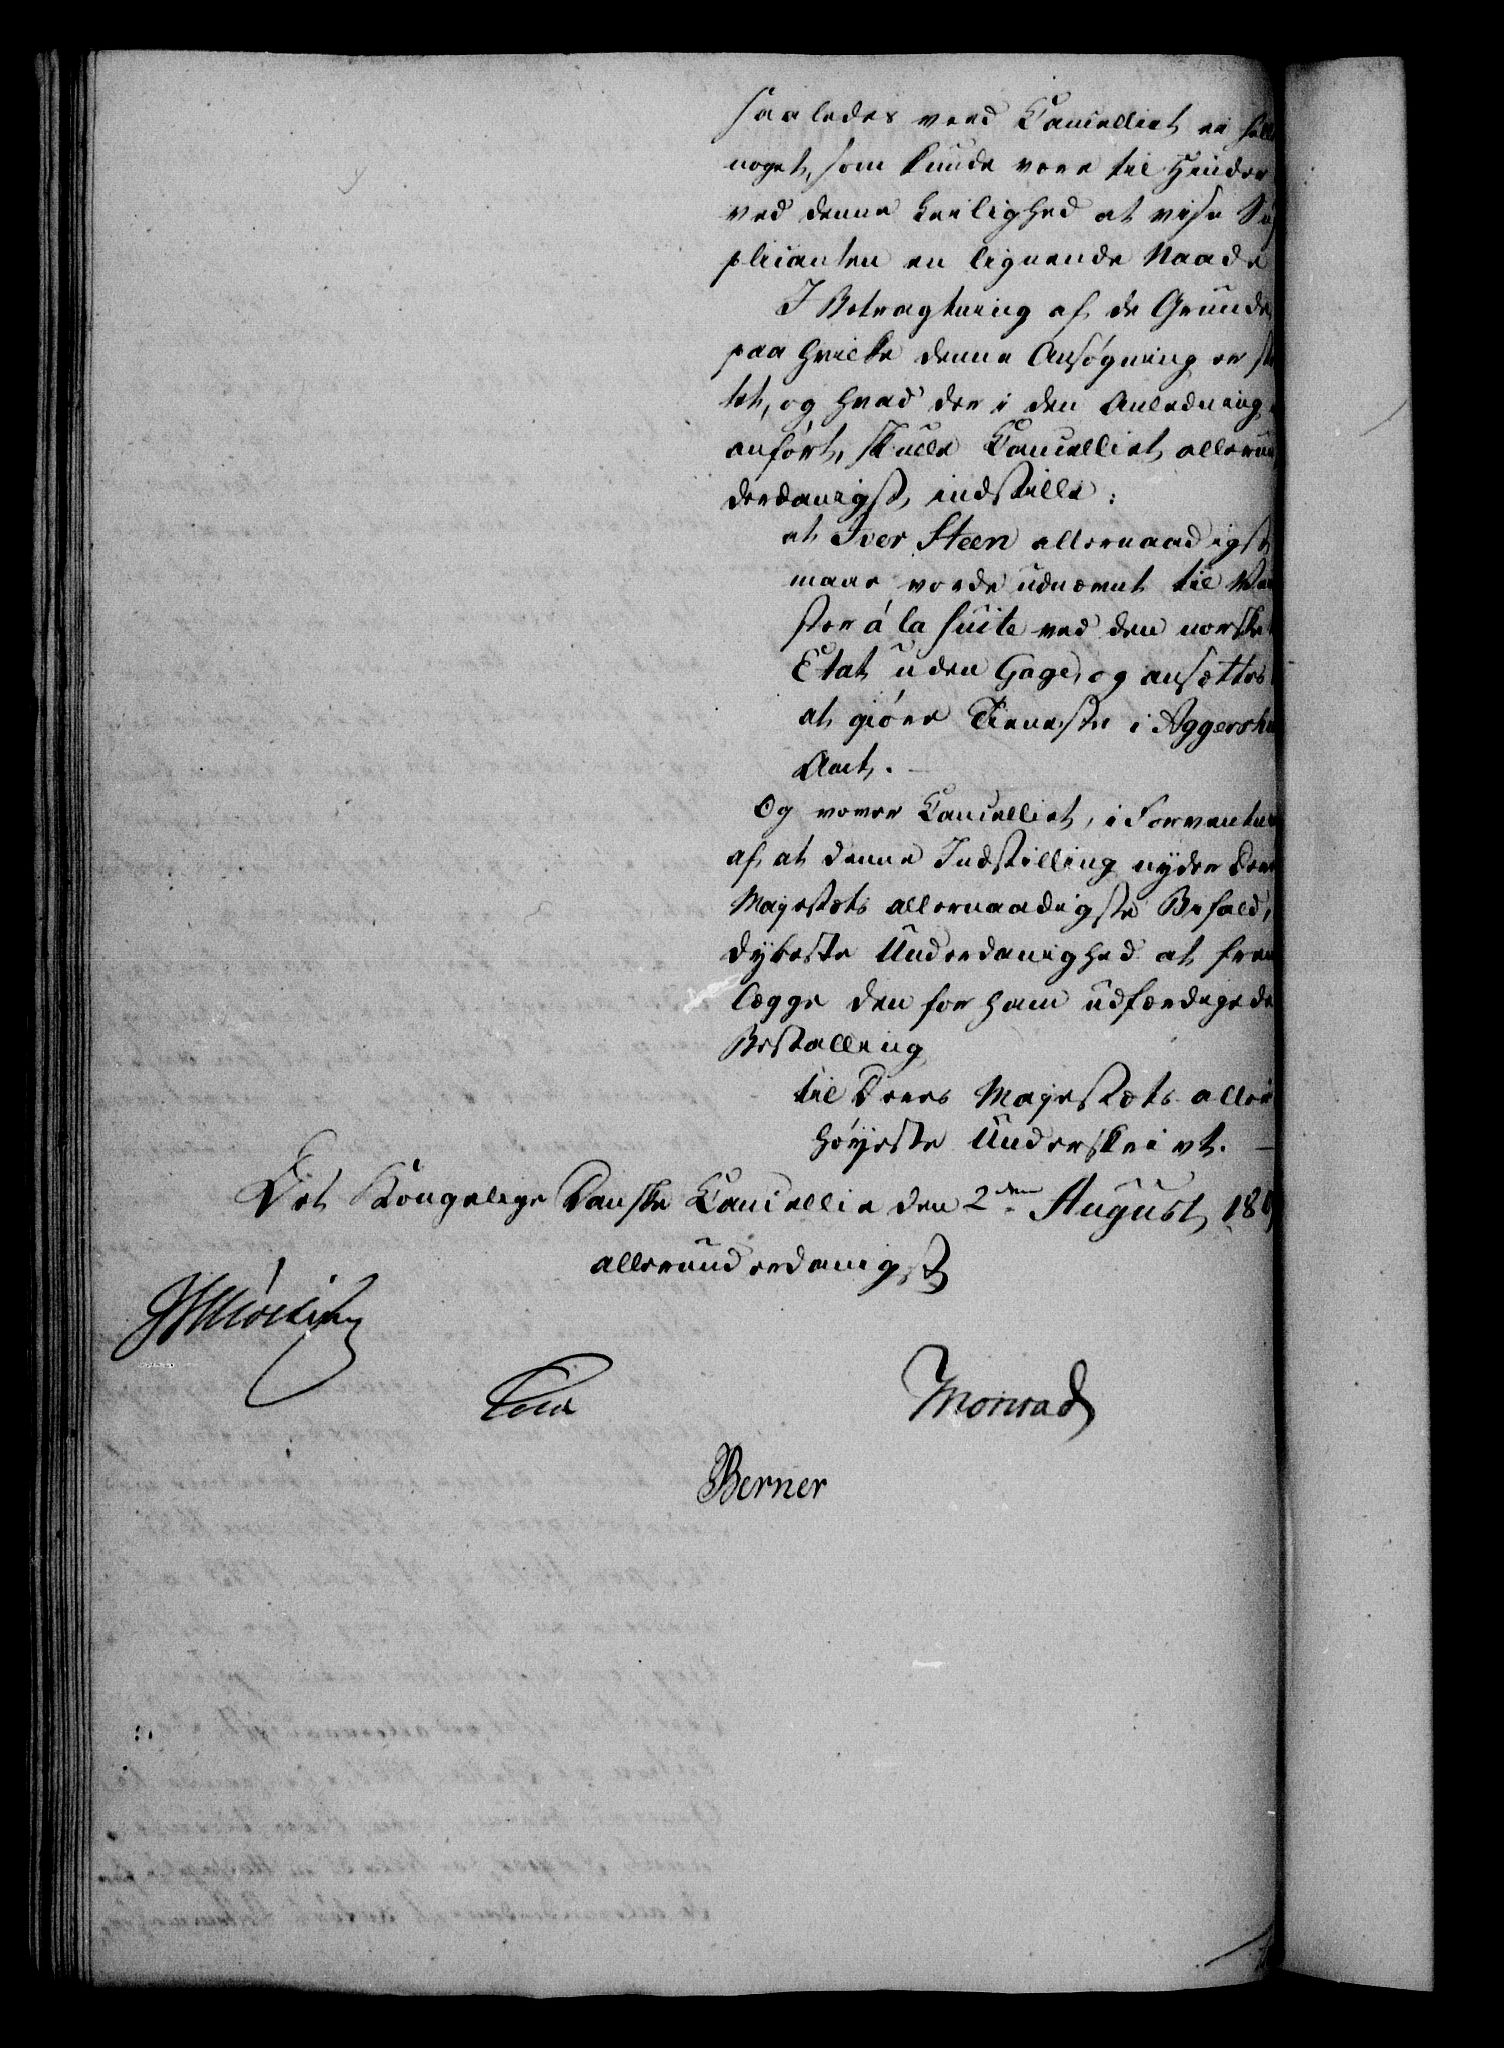 saaledes veed Cancelliet ei heller
noget, som kunde være til Hinder
ved denne Leilighed at vise Sup
plicanten en lignende Naade
I Betragtning af de Grunde,
paa hvilke denne Ansøgning er støt
tet, og hvad der i den Anledning
anført, skulle Cancelliet allerun
derdanigst indstille:
at Iver Steen allernaadigst
maae vorde udnævnt til
ster á la Suite ved den norske
Etat uden Gage, og ansættes
at giöre Tieneste i Aggershuus
Amt.
Og vover Cancelliet, i Forventning
af at denne Indstilling nyder Deres
Majestæts allernaadigste Bifald,
dybeste Underdanighed at frem
lægge den for ham udfærdigede
Bestalling
til Deres Majestæts aller
höyeste Underskrivt. —
Det Kongelige Danske Cancellie den 2den August 18
allerunderdanigst
Cold
Monrad
Berner